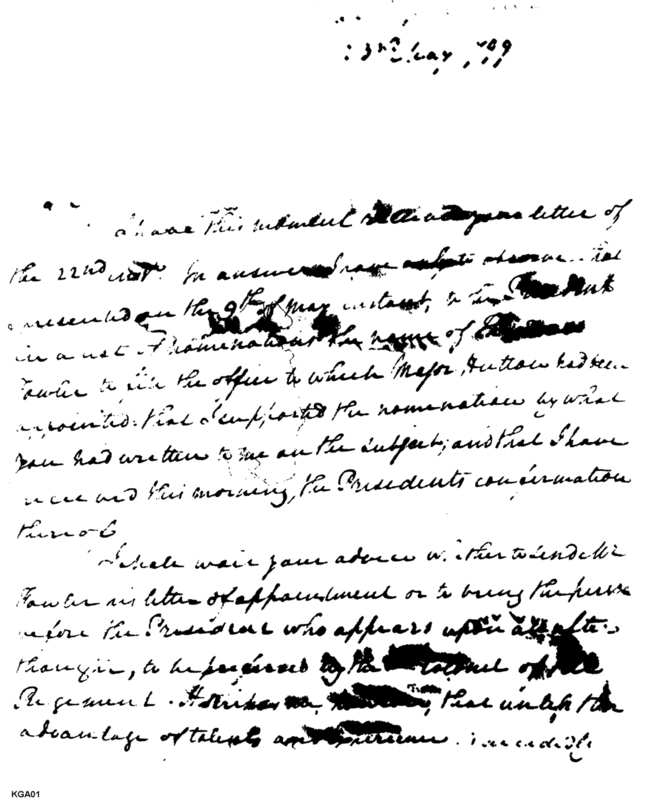 May 99
I have this moment received your letter of
the 22nd inst. In answer I have only to observe that
presented on the 9th of May instant, to the President
in a list of nominations the name of
Fowler to fill the office to which Major Hutton had been
appointed. that I supported the nomination by what
you had written to me on the subject; and that I have
received this morning, the Presidents confirmation
thereof
I shall wait your advice whether to send Mr
Fowler his letter of appointment or to bring the person
before the President who appears upon an after
thought, to be preferred by the Colonel of the
Regiment. It strikes me, that unless the
advantage of talents and experience
KGA01